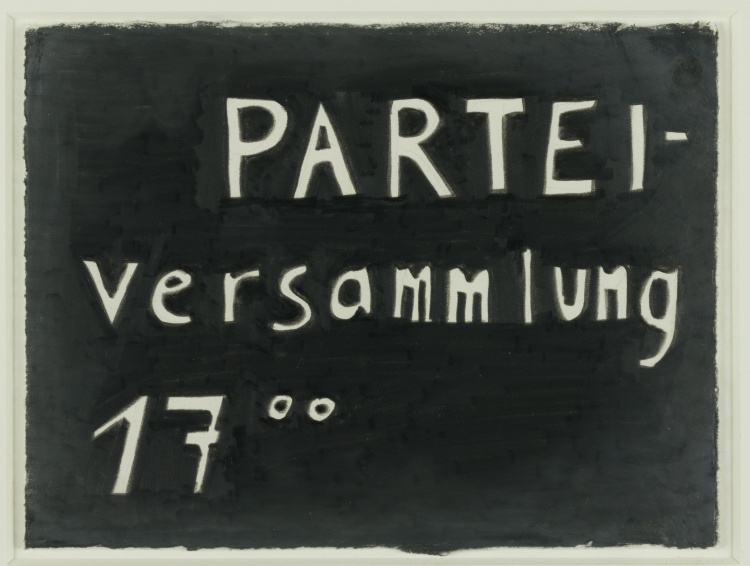 PARTEI-
versammlung
17⁰⁰